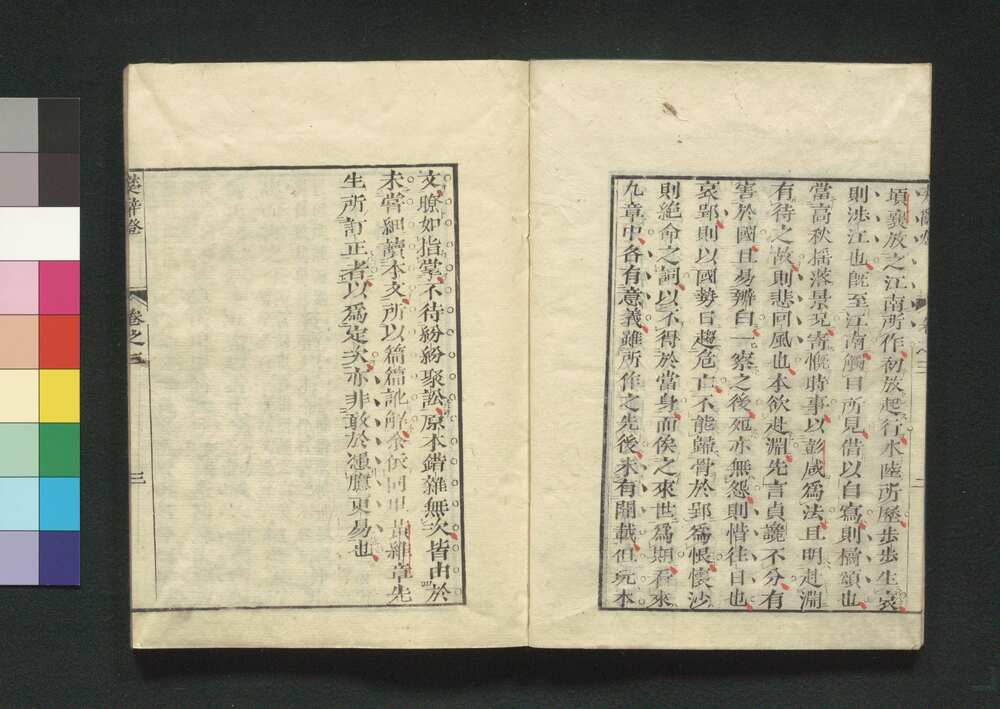 頃襄放之江南所作初放起行水陸所歷步步生哀
則涉江也既至江南觸目所見借以自寫則橘頌也
當高秋搖落景況寄慨時事以彭咸爲法且明赴淵
有待之故則悲回風也本欲赴淵先言貞讒不分有
害於國且易辨白一察之後死亦無怨則惜往日也
哀郢則以國勢日趨危亡不能歸骨於郢爲恨懷沙
則絶命之詞以不得於當身而俟之來世爲期看來
九章中各有意義雖所作之先後未有開載但玩本
文瞭如指掌不待紛紛聚訟原本錯雜無次皆由於
未嘗細讀本文所以篇篇訛解余依同里黃維章先
生所訂正者以爲定次亦非敢於憑臆更易也
楚辭燈 卷之三 三